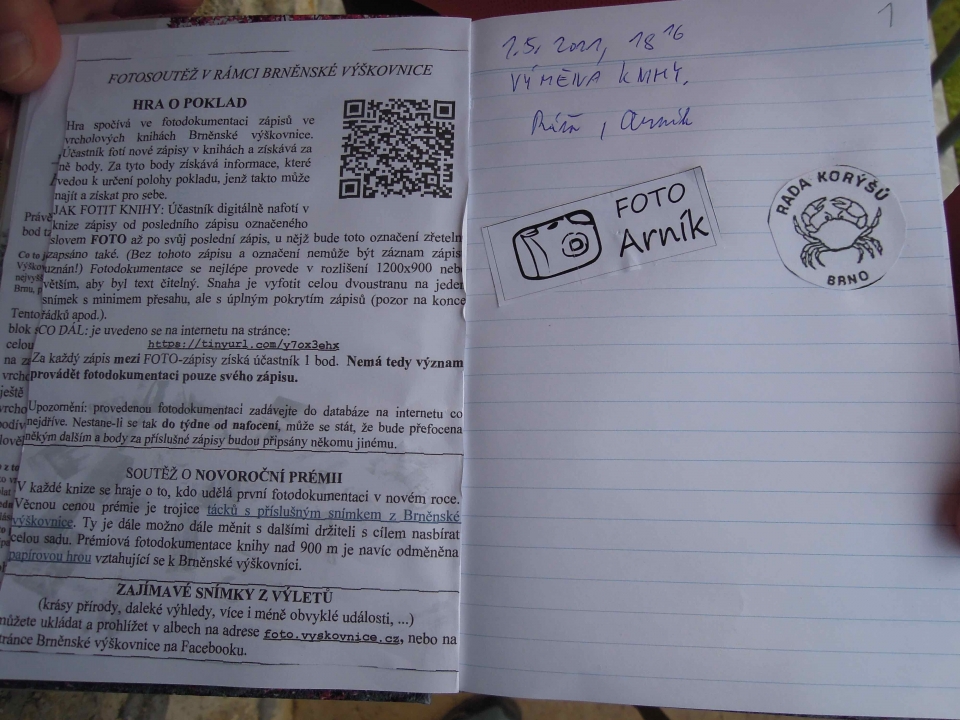 FOTOSOUTĚŽ V RÁMCI BRNĚNSKÉ VÝŠKOVNICE
HRA O POKLAD
Hra spočívá ve fotodokumentaci zápisů ve
vrcholových knihách Brněnské výškovnice.
Účastník fotí nové zápisy v knihách a získává za
ně body. Za tyto body získává informace, které
vedou k určení polohy pokladu, jenž takto může
najít a získat pro sebe.
JAK FOTIT KNIHY: Účastník digitálně nafotí v
knize zápisy od posledního zápisu označeného
slovem FOTO až po svůj poslední zápis, u nějž bude toto označení zřeteln
zapsáno také. (Bez tohoto zápisu a označení nemůže být záznam zápis
uznán!) Fotodokumentace se nejlépe provede v rozlišení 1200x900 neb
větším, aby byl text čitelný. Snaha je vyfotit celou dvoustranu na jeden
snímek s minimem přesahu, ale s úplným pokrytím zápisů (pozor na konce
řádků apod.).
CO DÁL: je uvedeno se na internetu na stránce:
https://tinyurl.com/y7ox3ehx
Za každý zápis mezi FOTO-zápisy získá účastník 1 bod. Nemá tedy význam
provádět fotodokumentaci pouze svého zápisu.
Upozornění: provedenou fotodokumentaci zadávejte do databáze na internetu co
nejdříve. Nestane-li se tak do týdne od nafocení, může se stát, že bude přefocena
někým dalším a body za příslušné zápisy budou připsány někomu jinému.
SOUTĚŽ O NOVOROČNÍ PRÉMII
V každé knize se hraje o to, kdo udělá první fotodokumentaci v novém roce.
Věcnou cenou prémie je trojice tácků s příslušným snímkem z Brněnské
výškovnice. Ty je dále možno dále měnit s dalšími držiteli s cílem nasbírat
celou sadu. Prémiová fotodokumentace knihy nad 900 m je navíc odměněna
papírovou hrou vztahující se k Brněnské výškovnici.
ZAJÍMAVÉ SNÍMKY Z VÝLETŮ
(krásy přírody, daleké výhledy, více i méně obvyklé události, ...)
můžete ukládat a prohlížet v albech na adrese foto.vyskovnice.cz, nebo na
stránce Brněnské výškovnice na Facebooku.
1
1.5. 2021, 18 16
VÝMĚNA KNIHY.
, Arník
FOTO
Arník
RADA KORÝŠŮ
BRNO